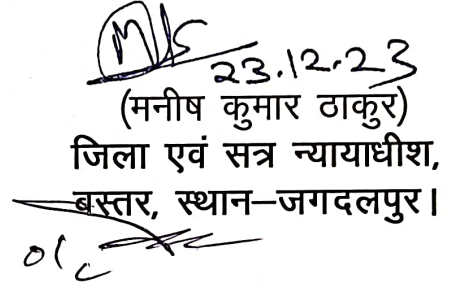 23.12.23
(मनीष कुमार ठाकुर)
जिला एवं सत्र न्यायाधीश,
बस्तर, स्थान–जगदलपुर।